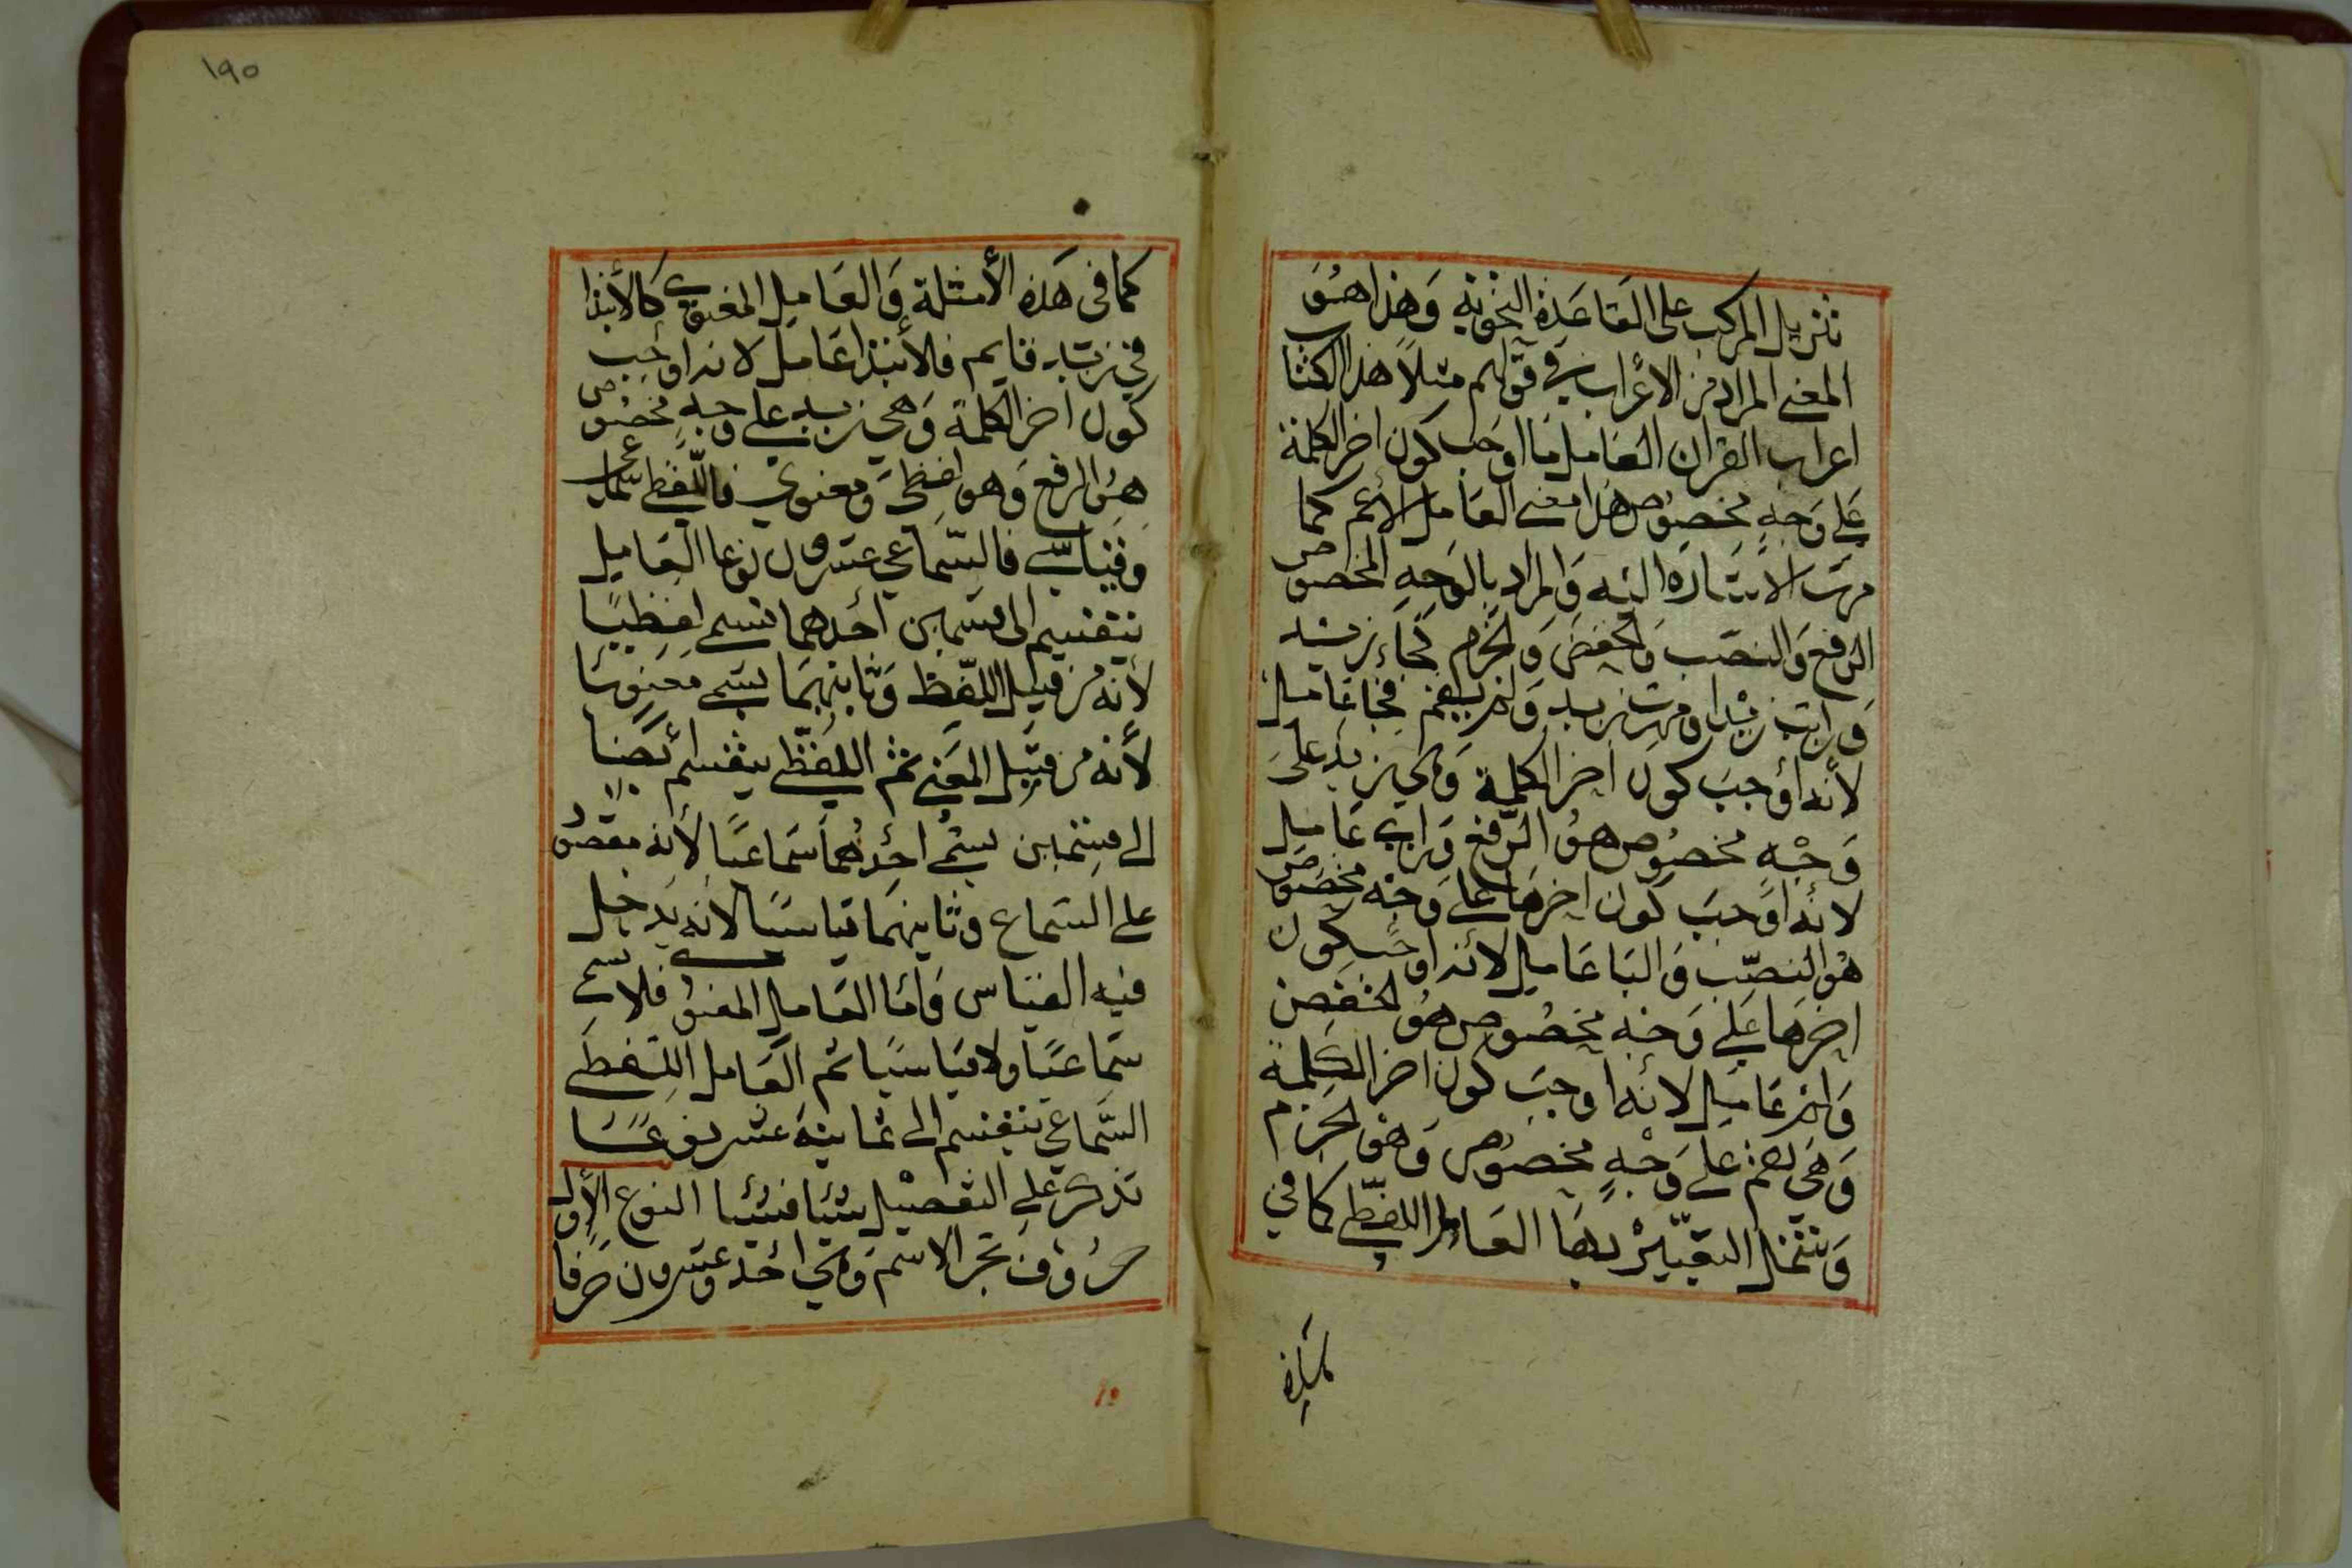 تنزيل المركب على القاعدة النحوية وهذا هو
المعنى المراد من الاعراب في قولهم مثلا هذا الكتا
اعراب القران العامل ما اوجب كون اخر الكلمة
على وجه مخصوص هذا معنى العامل الأعم كما
مرت الاشارة اليه والمراد بالوجه المخصوص
الرفع والنصب والخفض والجزم كجاء زيد
ورايت زيدا ومررت بزيد ولم يقم فجا عامل
لأنه أوجب كون اخر الكلمة وهي زيد على
وجه مخصوص هو الرفع ورايت عامل
لأنه اوجب كون اخرها على وجه مخصوص
هو النصب والبا عامل لأنه اوجب كون
اخرها على وجه مخصوص هو الخفض
ولم عامل لأنه اوجب كون اخر الكلمة
وهي يقم على وجه مخصوص وهو الجزم
العامل اللفظي كما في
١٩٥
كما في هذه الأمثلة والعامل المعنوي كالأبتدا
في زيد قايم فلأبتدا عامل لانه اوجب
كون اخر الكلمة وهي زيد على وجه مخصوص
هو الرفع وهو لفظي ومعنوي فاللفظي سماعي
وقياسي فالسماعي عشرون نوعا العامل
ينقسم الى قسمين أحدهما تسمى لفظيا
لأنه من قبيل اللفظ وثانيهما يسمى معنويا
لأنه من قبيل المعنى ثم اللفظي ينقسم أيضا
الى قسمين يسمى احدهما سماعيا لأنه مقصور
على السماع وثانيهما قياسيا لأنه يدخل
فيه القياس واما العامل المعنوي فلا يسمى
سماعيا ولا قياسيا ثم العامل اللفظي
السماعي ينقسم الى ثمانية عشر نوعا
تذكر على التفصيل شيأ فشيأ النوع الأول
حروف تجر الاسم وهي احد وعشرون حرفا